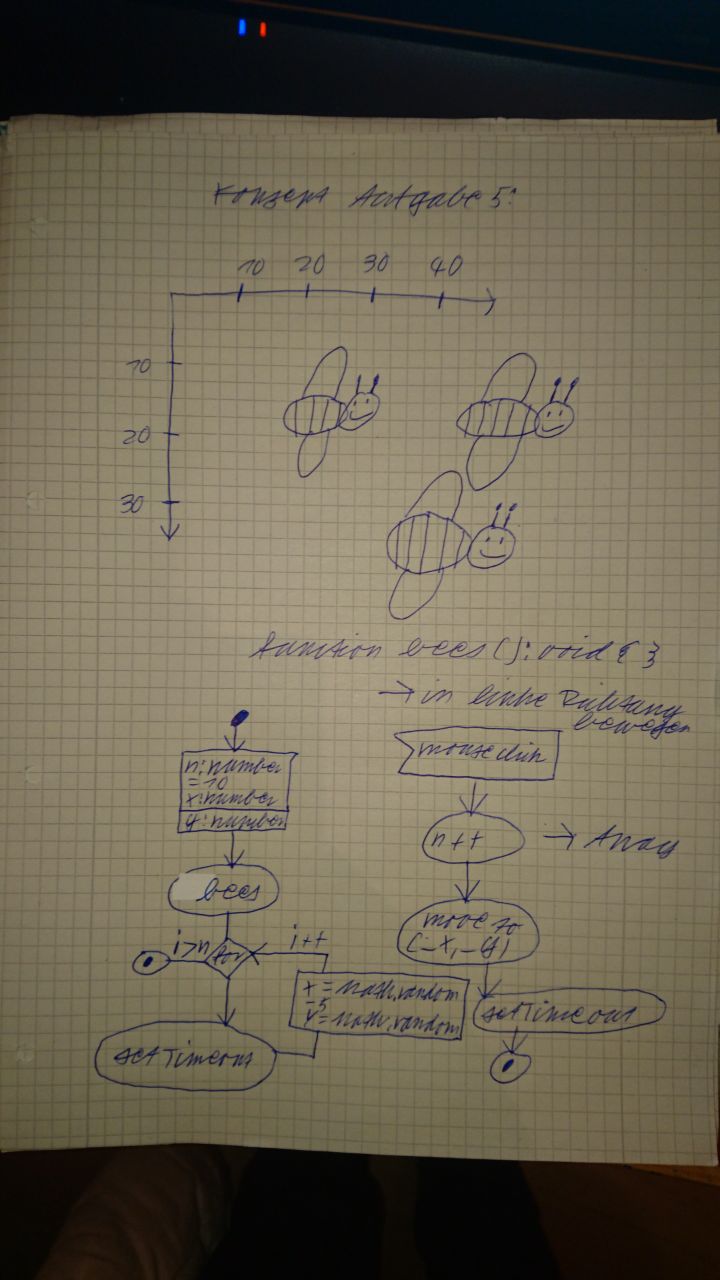 Konzept Aufgabe 5:
10 20 30 40
10
20
30
function bees(): void { }
→ in linke Richtung
bewegen
n: number
= 10
x: number
y: number
bees
i>n
for
i++
x = Math.random
y = Math.random
setTimeout
mouseclick
n++
→ Array
move to
(-x, -y)
setTimeout